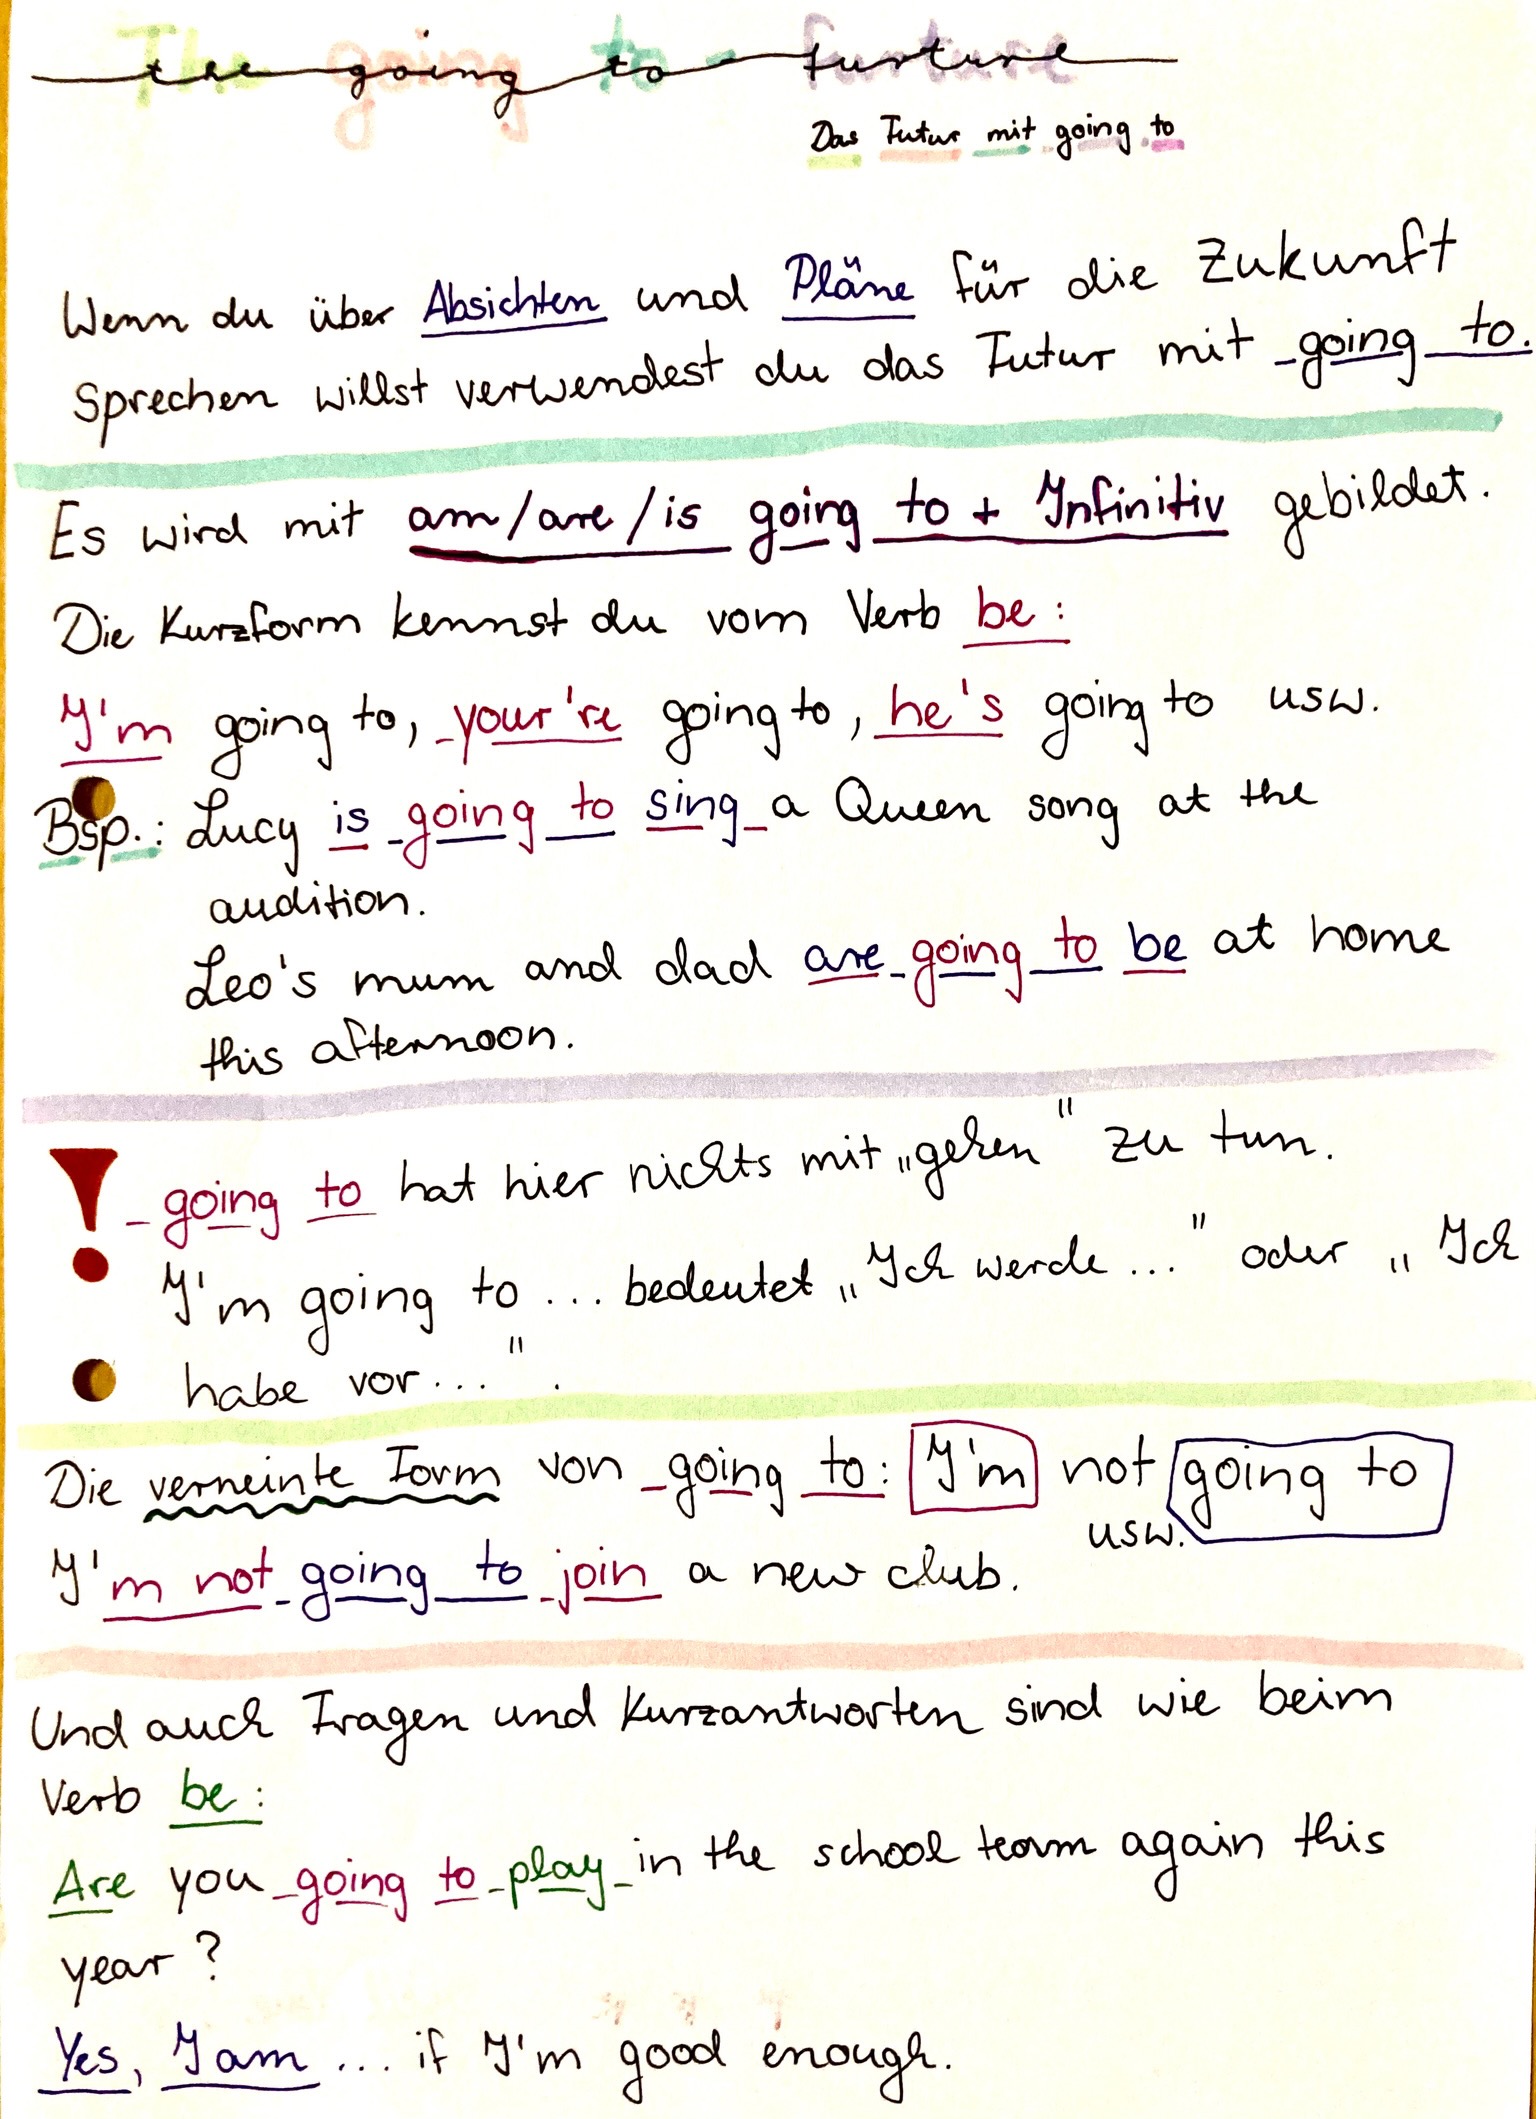 the going to - furture
Das Futur mit going to
Wenn du über Absichten und Pläne für die Zukunft
sprechen willst verwendest du das Futur mit going to.
Es wird mit am/are/is going to + Infinitiv gebildet.
Die Kurzform kennst du vom Verb be:
I'm going to, your're going to, he's going to usw.
Bsp.: Lucy is going to sing a Queen song at the
audition.
Leo's mum and dad are going to be at home
this afternoon.
! going to hat hier nichts mit „gehen" zu tun.
I'm going to ... bedeutet „Ich werde ..." oder „Ich
habe vor ...".
Die verneinte Form von going to: I'm not going to
usw.
I'm not going to join a new club.
Und auch Fragen und Kurzantworten sind wie beim
Verb be:
Are you going to play in the school team again this
year?
Yes, I am ... if I'm good enough.